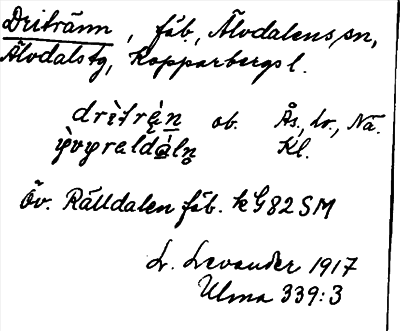 Dritränn, fäb., Älvdalens sn,
Älvdals tg, Kopparbergs l.
drìträ̀n ob. Ås., Lv., Na.
Kl.
Öv. Rälldalen fäb. k G82SM
L. Levander 1917
Ulma 339:3